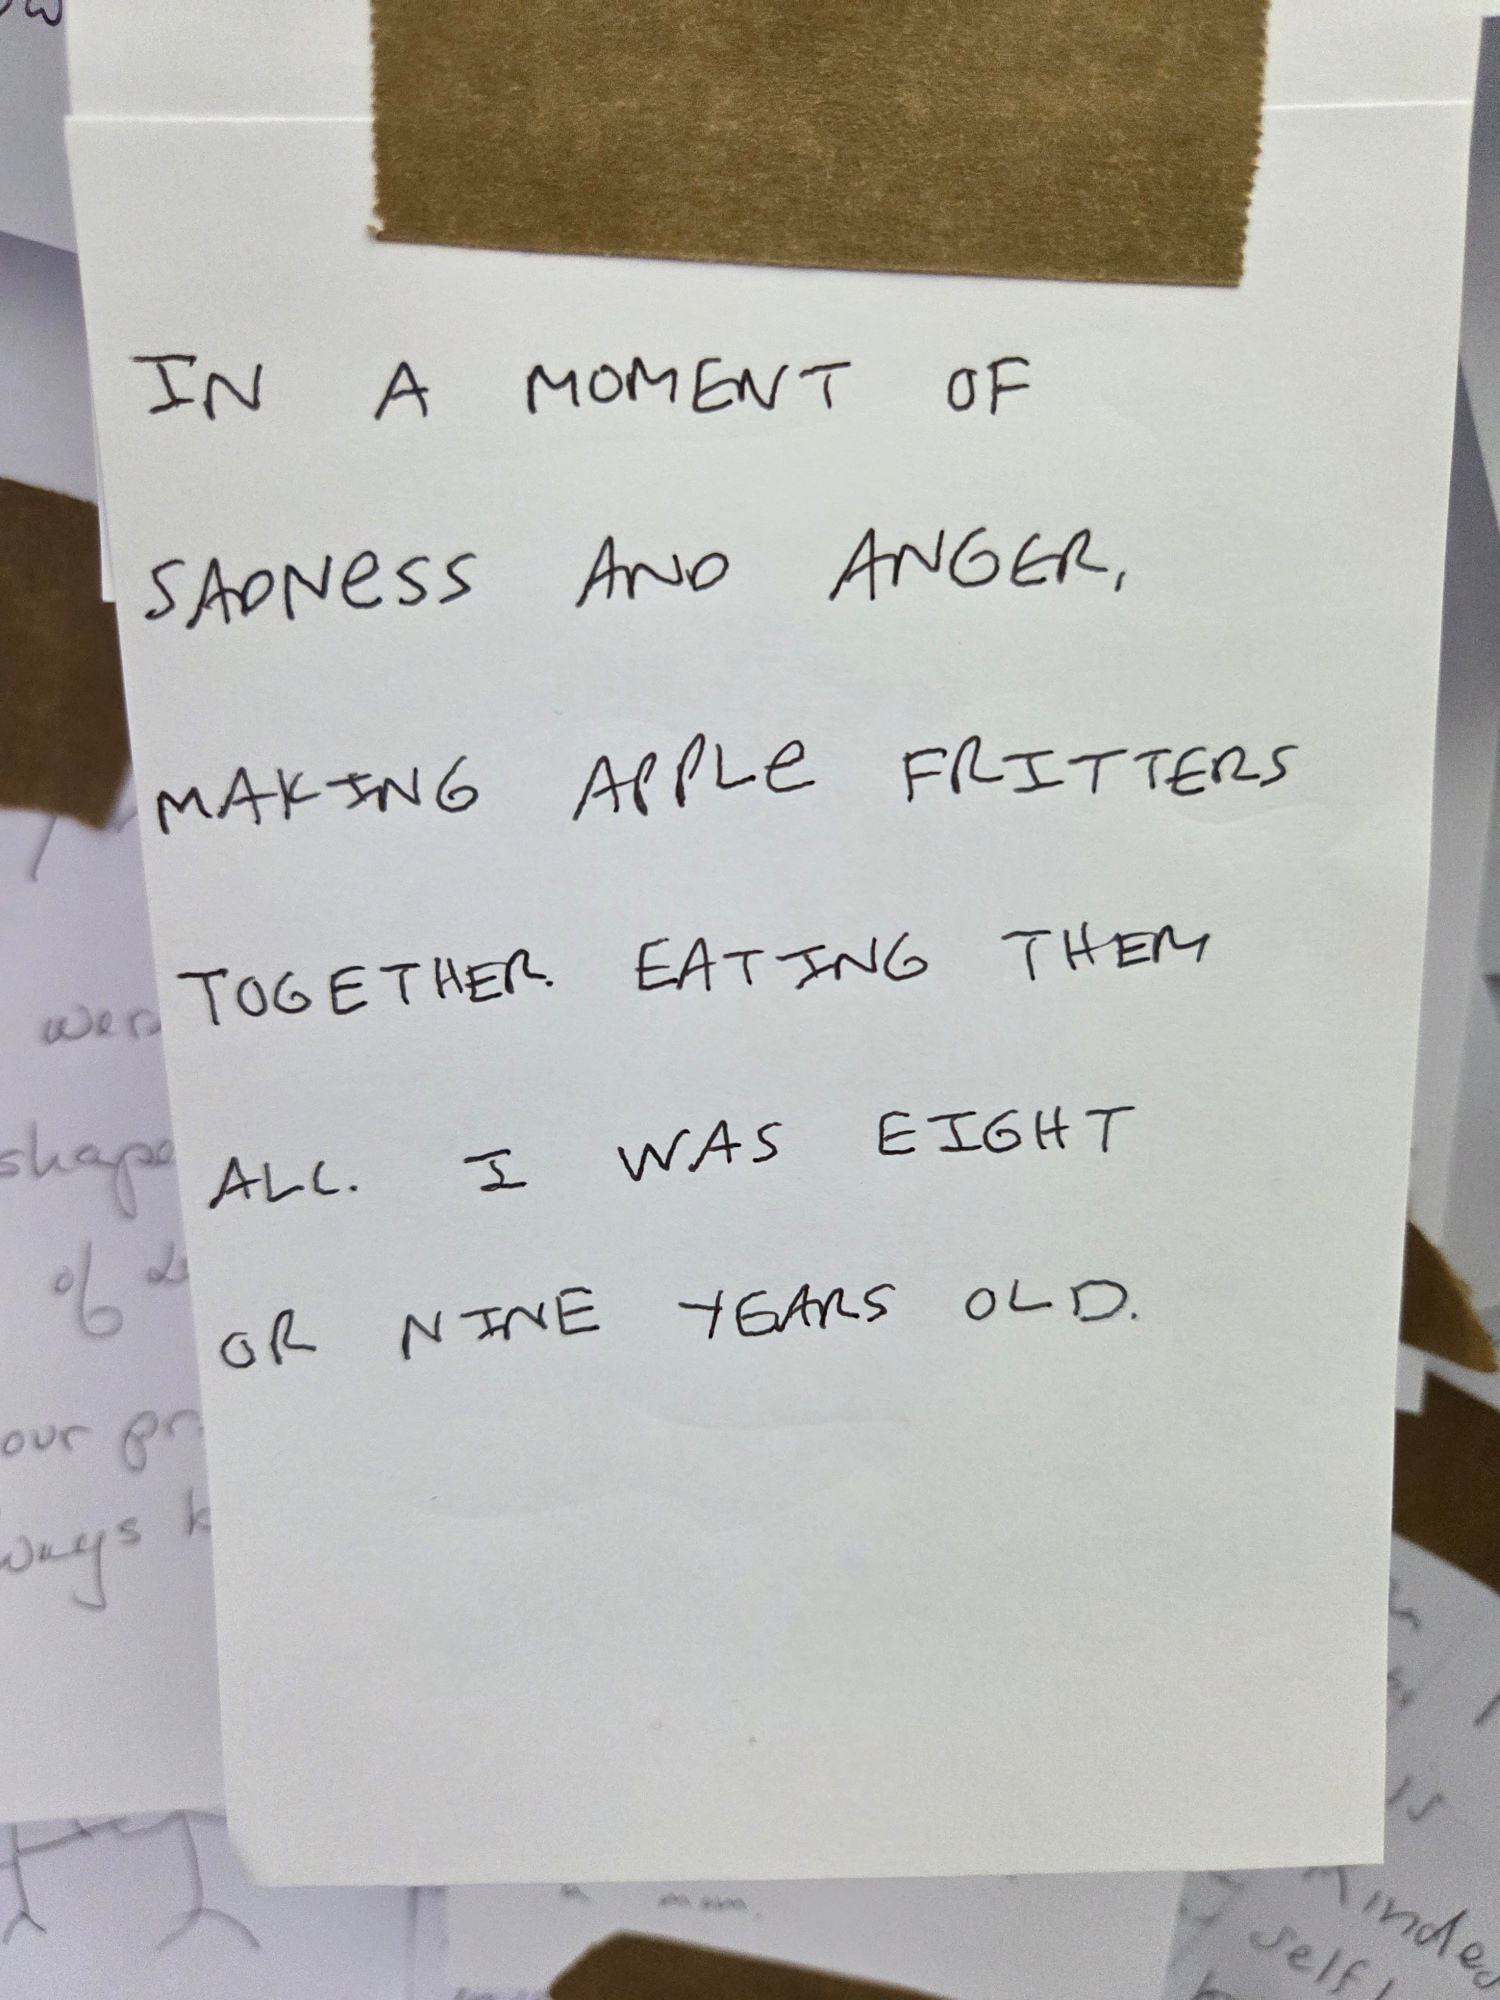 IN A MOMENT OF
SADNESS AND ANGER,
MAKING APPLE FRITTERS
TOGETHER. EATING THEM
ALL. I WAS EIGHT
OR NINE YEARS OLD.
shape
of
our
is
a mom.
self